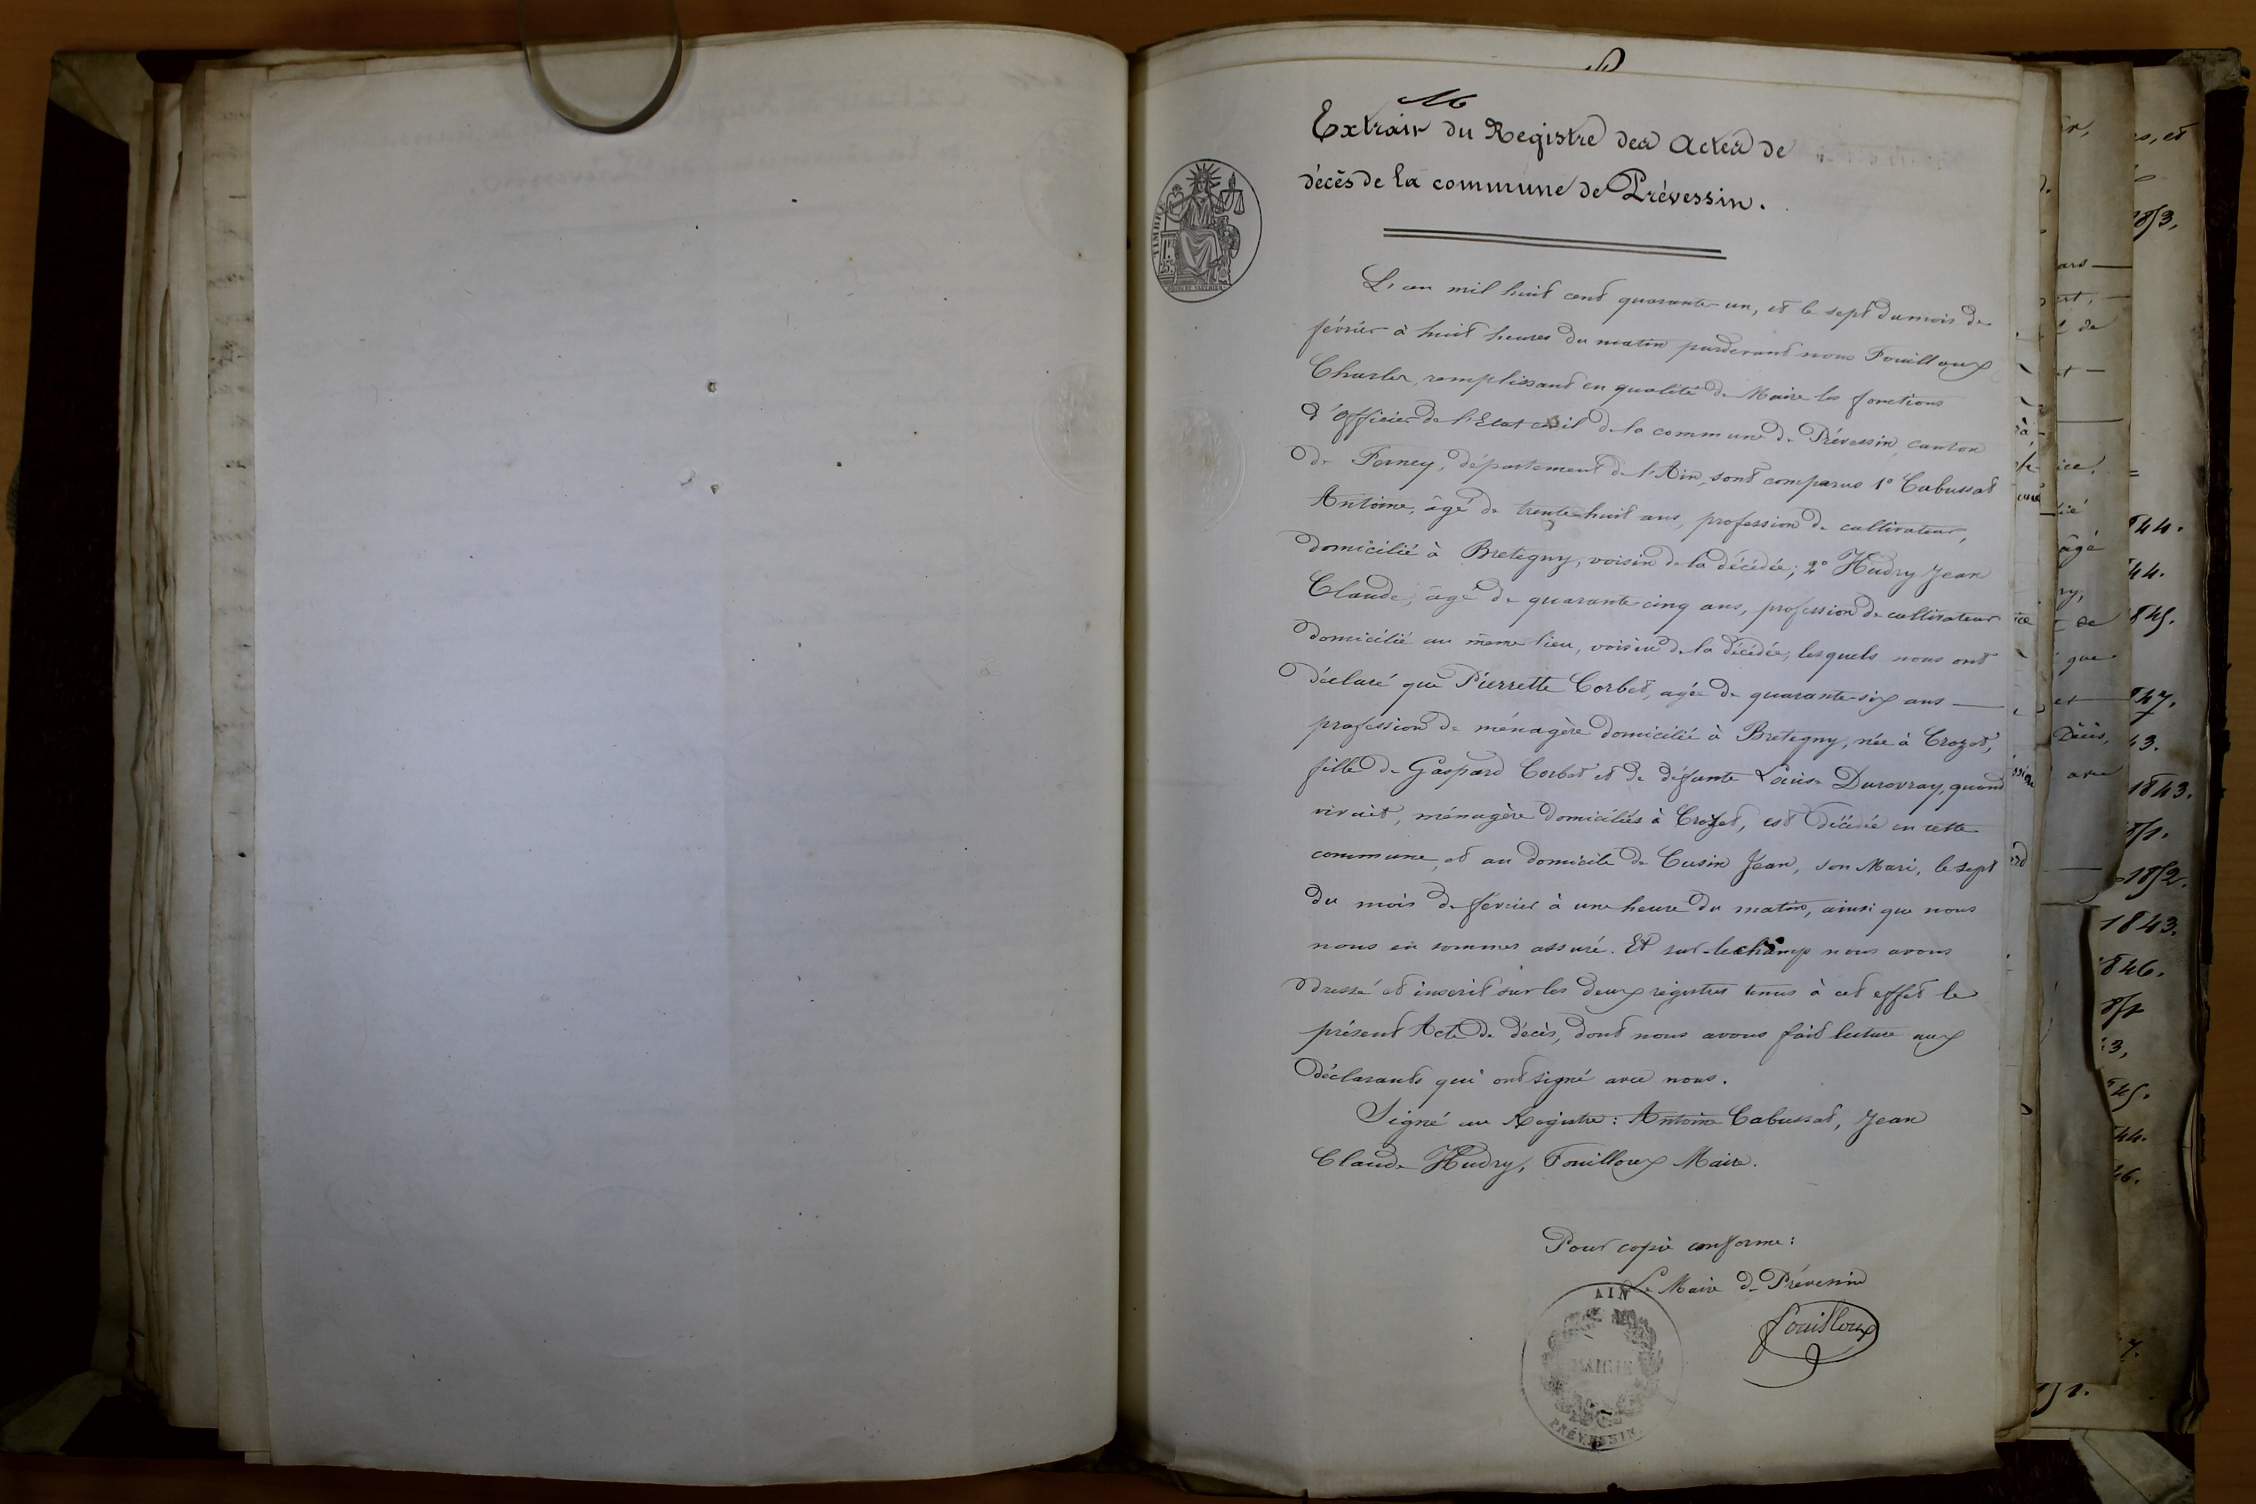 Extrait du Registre des Actes de
décès de la commune de Prévessin.
TIMBRE
L'an mil huit cent quarante-un, et le sept du mois de
février à huit heures du matin pardevant nous Fouilloux
Charles, remplissant en qualité de Maire les fonctions
d'Officier de l'Etat civil de la commune de Prévessin, canton
de Ferney, département de l'Ain, sont comparus 1° Cabussat
Antoine, âgé de trente-huit ans, profession de cultivateur,
domicilié à Bretegny, voisin de la décédée; 2° Hudry Jean
Claude, âgé de quarante cinq ans, profession de cultivateur
domicilié au même lieu, voisin de la décédée, lesquels nous ont
déclaré que Pierrette Corbet, agée de quarante-six ans —
profession de ménagère domicilié à Bretegny, née à Crozet,
fille de Gaspard Corbet et de défunte Louise Durovray, quand
vivait, ménagère domiciliés à Crozet, est décédée en cette
commune, et au domicile de Cusin Jean, son Mari, le sept
du mois de février à une heure du matin, ainsi que nous
nous en sommes assuré. Et sur-le champ nous avons
dressé et inscrit sur les deux registres tenus à cet effet le
présent Acte de décès, dont nous avons fait lecture aux
déclarants qui ont signé avec nous.
Signé au Registre: Antoine Cabussat, Jean
Claude Hudry, Fouilloux Maire.
Pour copie conforme:
Le Maire de Prévessin
Fouilloux
AIN
MAIRIE
PRÉVESSIN
1843.
1852.
1843.